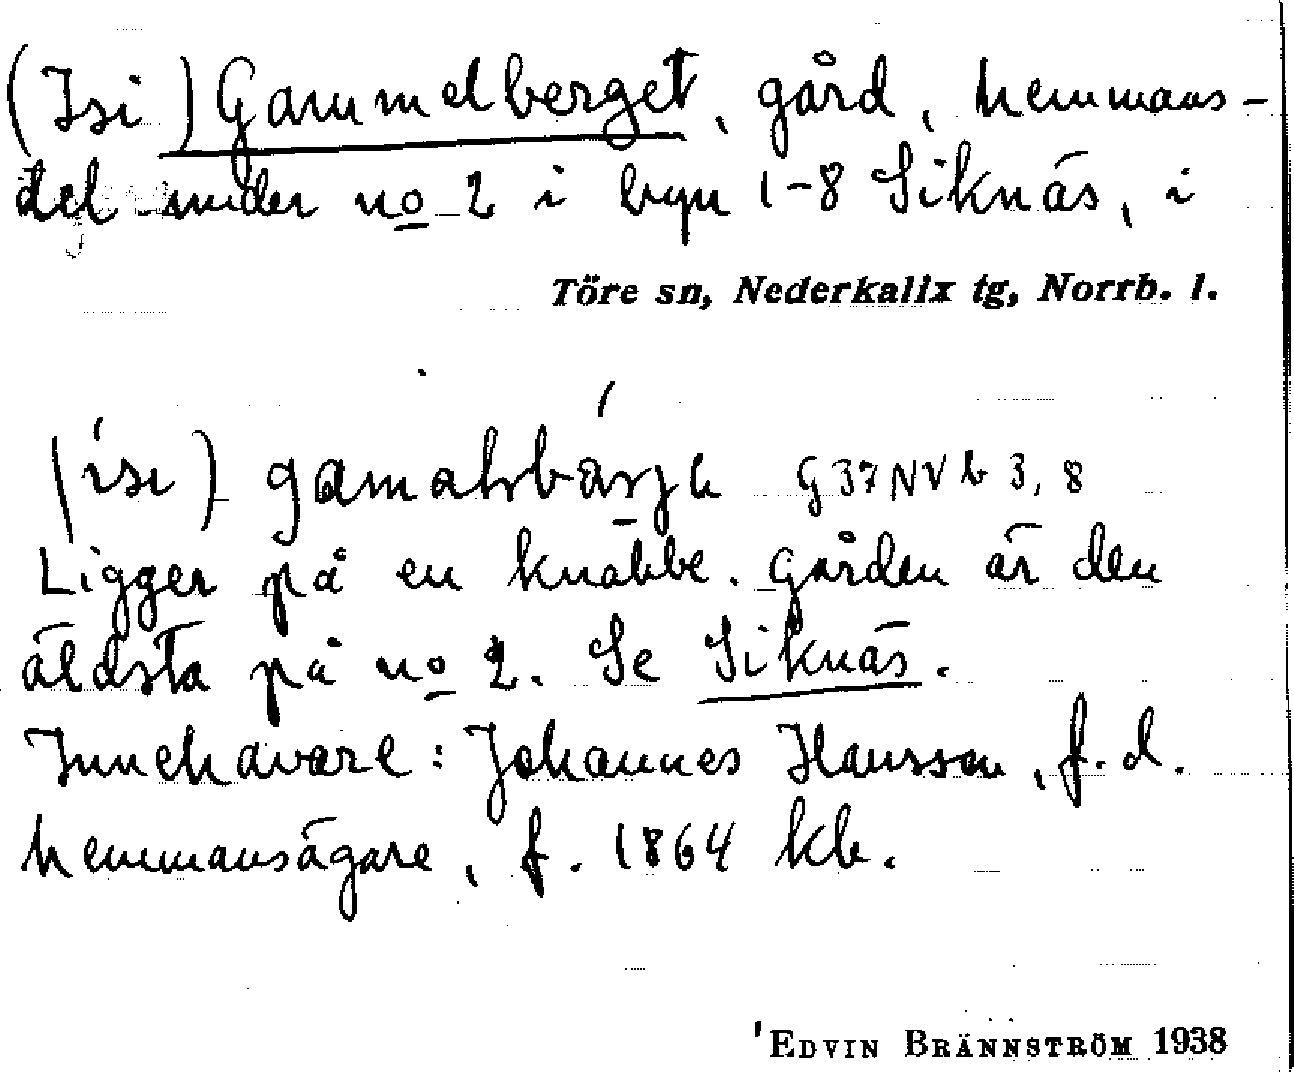 (Isi) Gammelberget, gård, hemmans-
del under no 2 i byn 1-8 Siknäs, i
Töre sn, Nederkalix tg, Norrb. l.
G 37 NV b 3, 8
Ligger på en knabbe. Gården är den
äldsta på no 2. Se Siknäs.
Innehavare: Johannes Hansson, f.d.
hemmansägare, f. 1864 kb.
EDVIN BRÄNNSTRÖM 1938